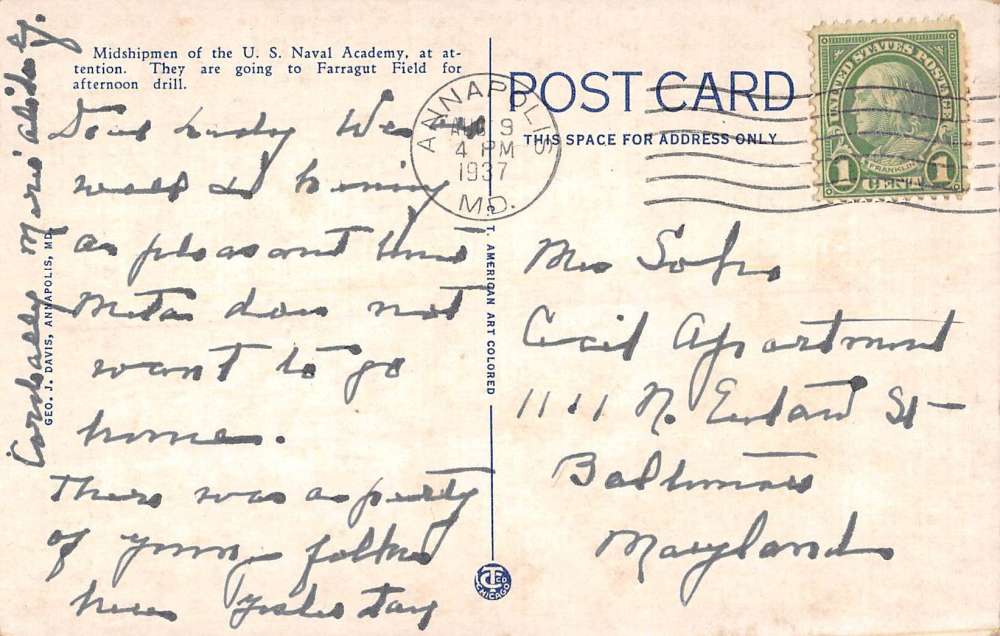 Midshipmen of the U. S. Naval Academy, at at-
tention. They are going to Farragut Field for
afternoon drill.
Dear Lady We
well &
a pleasant time
Meta does not
want to go
home.
There was a party
of young folks
here yesterday
Cordially
GEO. J. DAVIS, ANNAPOLIS, MD.
C. T. AMERICAN ART COLORED
POST CARD
THIS SPACE FOR ADDRESS ONLY
ANNAPOLIS
AUG 9
4 PM
1937
MD.
UNITED STATES POSTAGE
FRANKLIN
1 CENT 1
Mrs
Cecil Apartment
1111 N. Eutaw St
Baltimore
Maryland
CT CO
CHICAGO